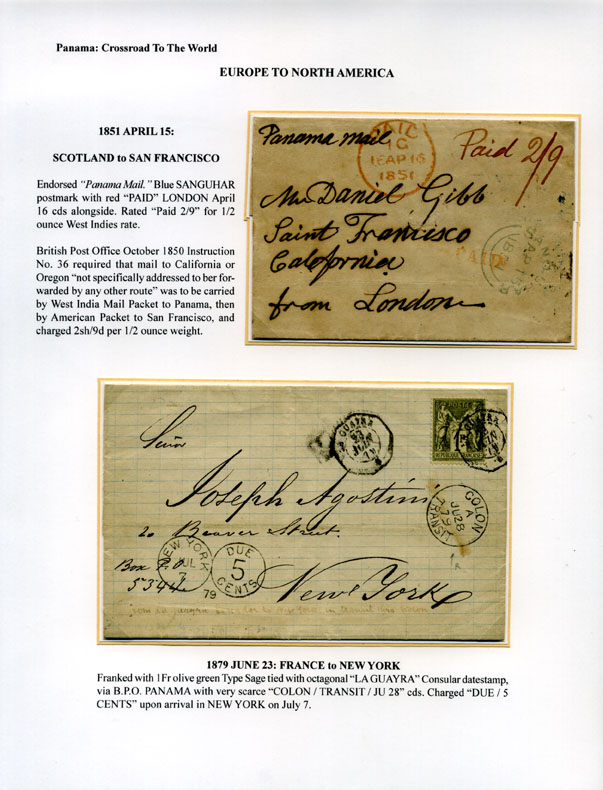 Panama: Crossroad To The World
EUROPE TO NORTH AMERICA
1851 APRIL 15:
SCOTLAND to SAN FRANCISCO
Endorsed "Panama Mail." Blue SANGUHAR
postmark with red "PAID" LONDON April
16 cds alongside. Rated "Paid 2/9" for 1/2
ounce West Indies rate.
British Post Office October 1850 Instruction
No. 36 required that mail to California or
Oregon "not specifically addressed to be for-
warded by any other route" was to be carried
by West India Mail Packet to Panama, then
by American Packet to San Francisco, and
charged 2sh/9d per 1/2 ounce weight.
Panama mail
PAID
1G
16AP16
1851
Paid 2/9
Mr Daniel Gibb
Saint Francisco
Califor​nia
from London
PAID
Señor
LA GUAYRA
23
JUIN
79
Joseph Agostini
20 Beaver Street.
Box P.O
5344
New York
NEW YORK
JUL
7
79
DUE
5
CENTS
COLON
A
JU28
79
TRANSIT
LA GUAYRA
JUIN
79
POSTE
REPUBLIQUE FRANCAISE
1879 JUNE 23: FRANCE to NEW YORK
Franked with 1Fr olive green Type Sage tied with octagonal "LA GUAYRA" Consular datestamp,
via B.P.O. PANAMA with very scarce "COLON / TRANSIT / JU 28" cds. Charged "DUE / 5
CENTS" upon arrival in NEW YORK on July 7.